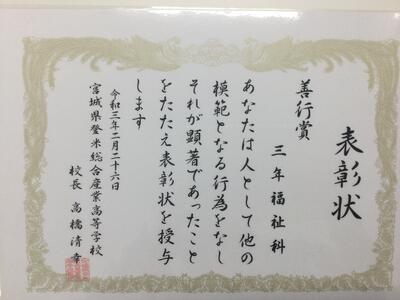 表彰状
善行賞
三年福祉科
あなたは人として他の
模範となる行為をなし
それが顕著であったこと
をたたえ表彰状を授与
します
令和三年二月二十六日
宮城県登米総合産業高等学校
校長 高橋清幸